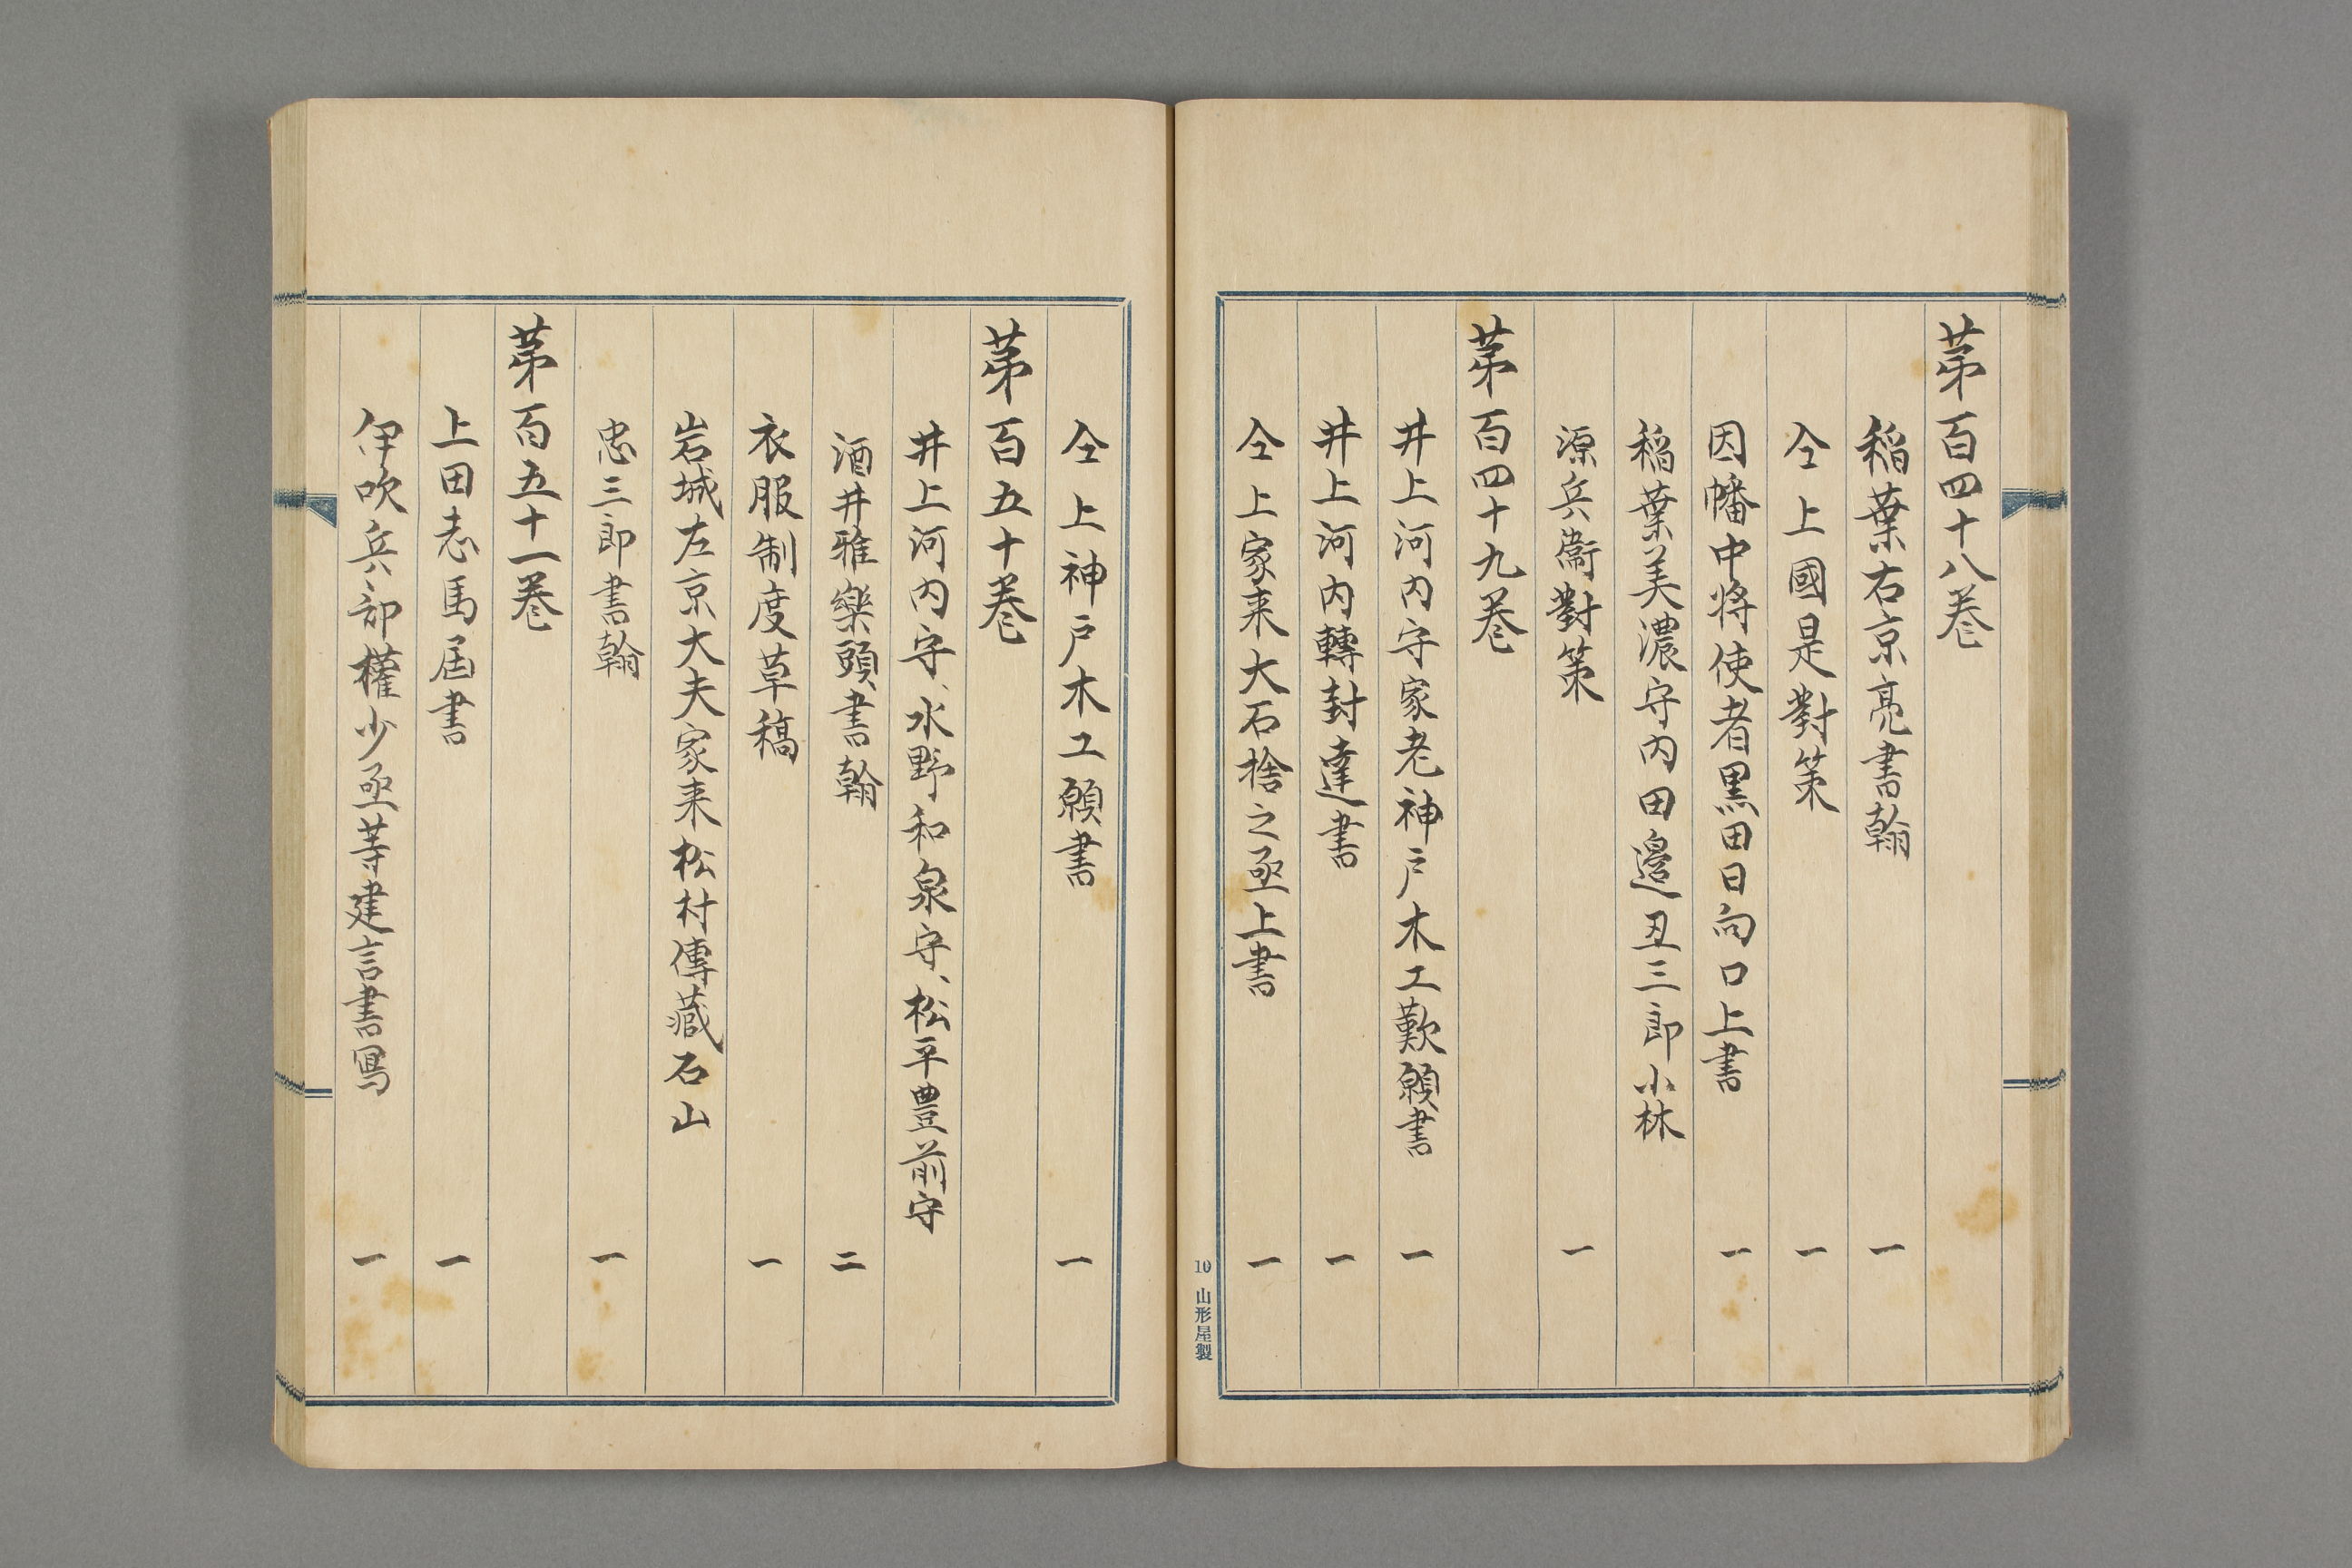 第百四十八巻
稲葉右京亮書翰 一
仝上國是對策 一
因幡中将使者黒田日向口上書 一
稲葉美濃守内田邉丑三郎小林
源兵衞對策 一
第百四十九巻
井上河内守家老神戸木工歎願書 一
井上河内轉封達書 一
仝上家来大石捨之丞上書 一
10 山形屋製
仝上神戸木工願書 一
第百五十巻
井上河内守、水野和泉守、松平豊前守
酒井雅樂頭書翰 二
衣服制度草稿 一
岩城左京大夫家来松村傳藏石山
忠三郎書翰 一
第百五十一巻
上田志馬届書 一
伊吹兵部權少丞等建言書寫 一